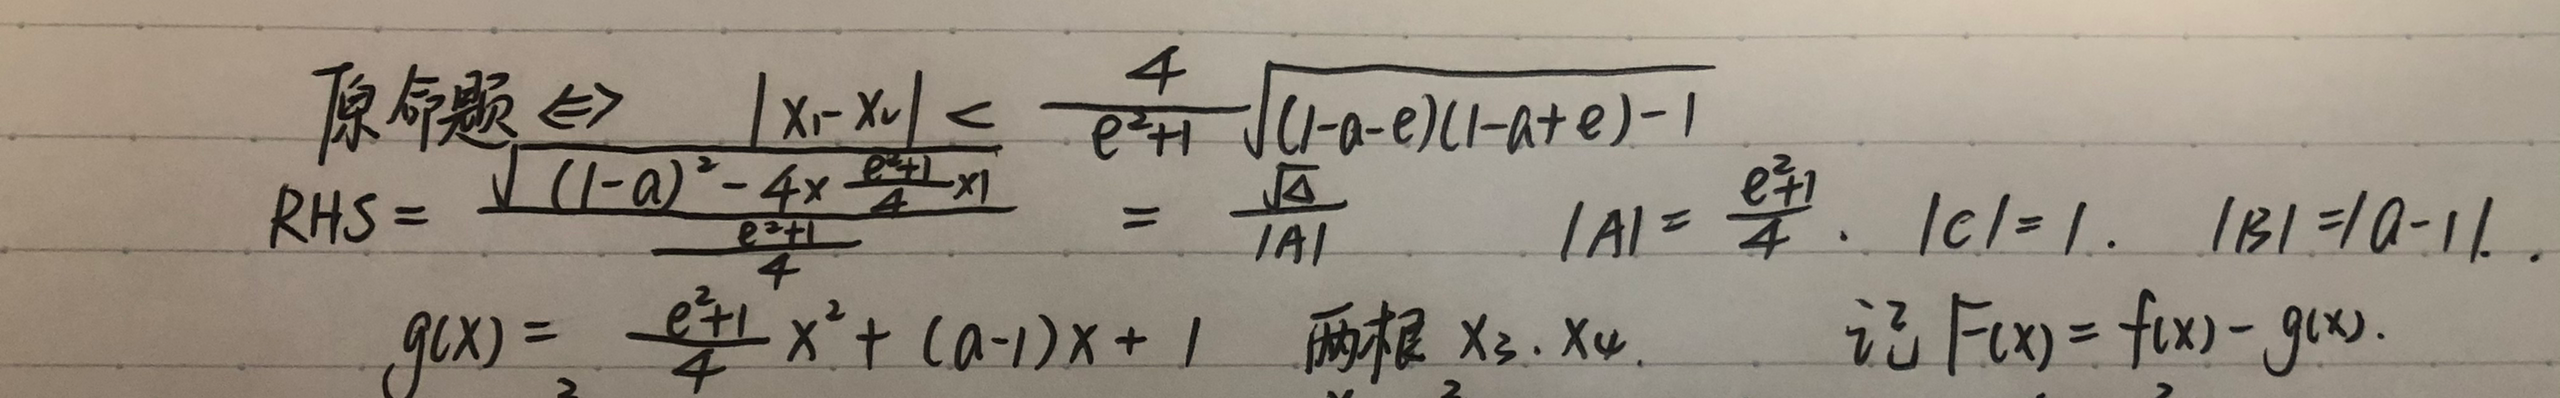 原命题 ⇔ |x₁-x₂| < 4/(e²+1) √((1-a-e)(1-a+e)-1)
RHS = √((1-a)²-4×(e²+1)/4×1) / ((e²+1)/4) = √Δ/|A| |A| = (e²+1)/4 . |C| = 1 . |B| = |a-1|. .
g(x) = (e²+1)/4 x² + (a-1)x + 1 两根 x₃ . x₄. 记 F(x) = f(x) - g(x).